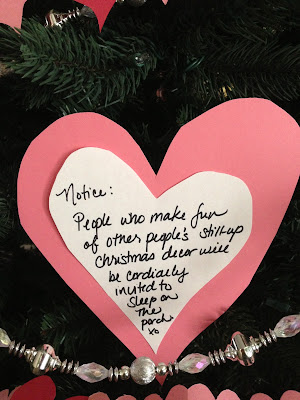 Notice:
People who make fun
of other people's still-up
Christmas decor will
be cordially
invited to
sleep on
the
porch.
xo